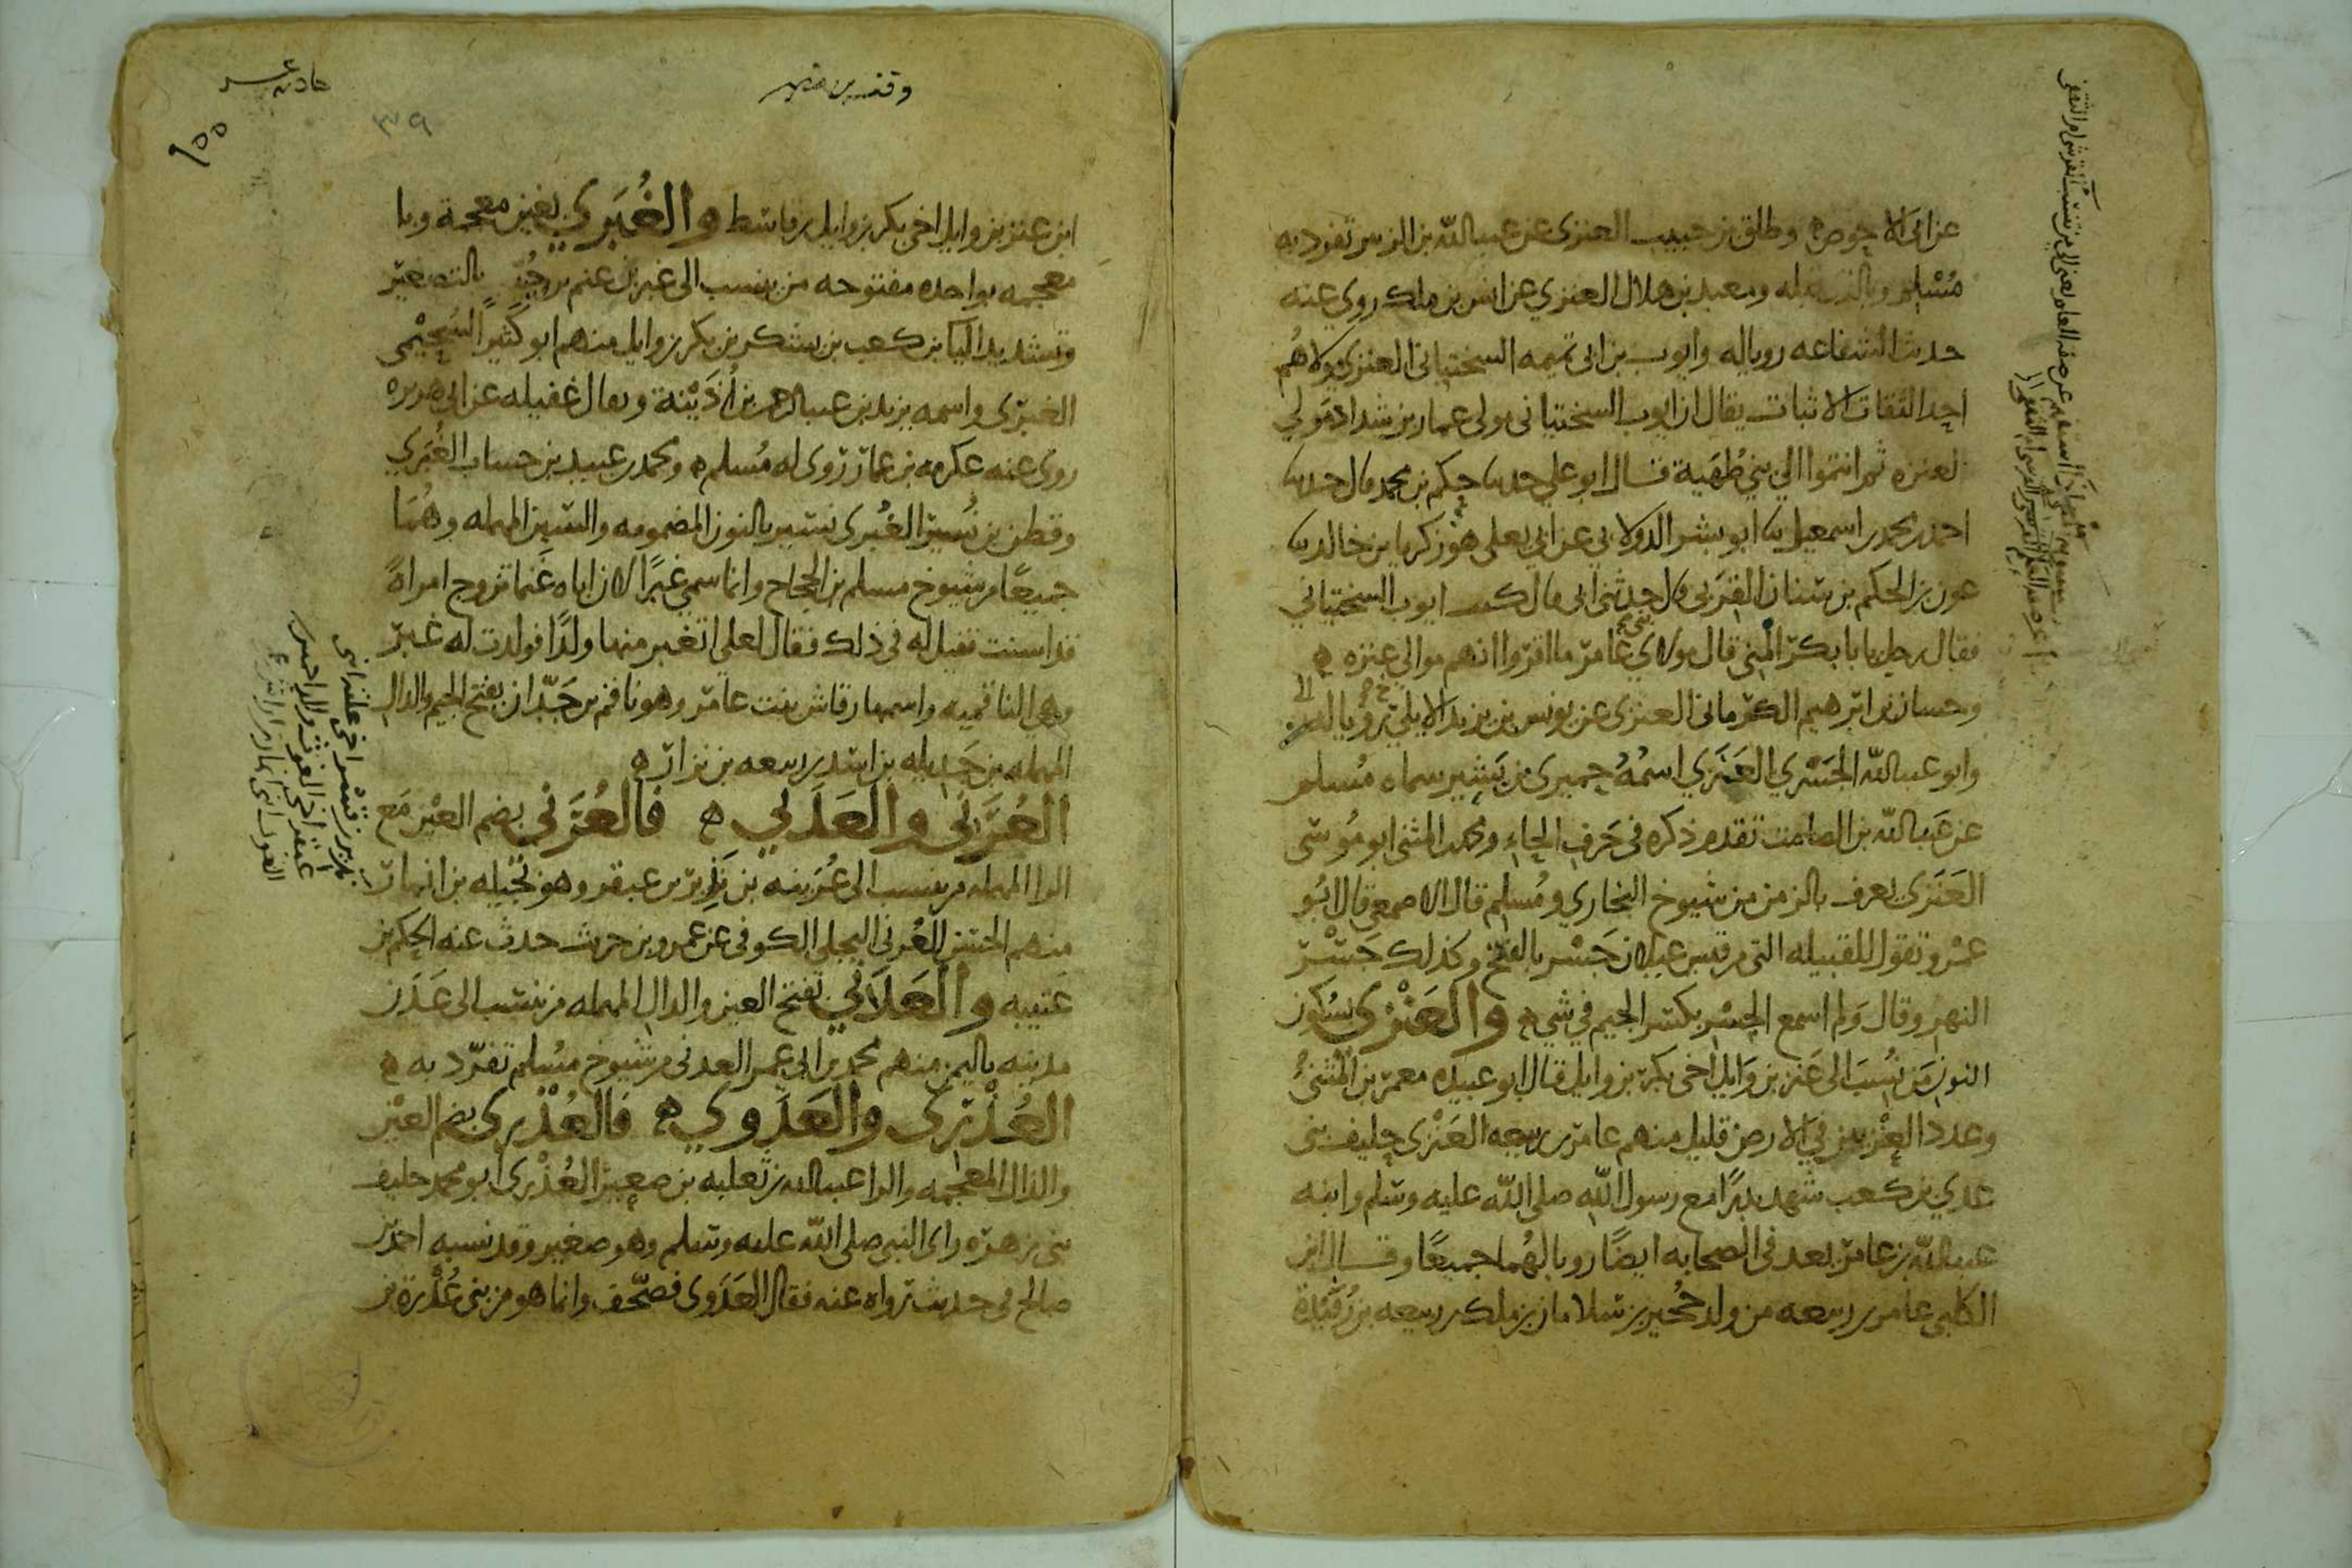 عن ابى الاحوص ه وطلق بن حبيب العنزى عن عبدالله بن الزبير تفرد به
مسلم ومعبد بن هلال العنزي عن انس بن ملك روي عنه
حديث الشفاعه رويا له وايوب بن ابى تميمه السختيانى العنزى مولاهم
احد الثقات الاثبات يقال ان ايوب السختيانى مولى عمار بن شداد مولي
لعنزه ثم انتموا الي بني طهية قال ابو علي حدثنا حكم بن محمد قال حدثنا
احمد بن محمد بن اسمعيل نا ابو بشر الدولابي عن ابي يعلى هو زكريا بن خالد نا
عون بن الحكم بن سنان القربى قال حدثنى ابى قال كنت ايوب السختياني
فقال رجل يا با بكر المنى قال مولاي عامر ما اقروا انهم موالي عنزه ه
وحسان بن ابرهيم الكرمانى العنزى عن يونس بن يزيد الايلي رويا له
وابو عبدالله الجسري العنزي اسمه حميرى بن بشير سماه مسلم
عن عبدالله بن الصامت تقدم ذكره فى حرف الحاء ومحمد بن المثنى ابو موسى
العنزى يعرف بالزمن من شيوخ البخاري ومسلم قال الاصمعى قال ابو
عمرو تقول للقبيله التى من قيس عيلان جسر بالفتح وكذلك جسر
النهر وقال ولم اسمع الجسر بكسر الجيم في شي ه والعنزى بسكون
النون من نسب الى عنز بن وايل اخى بكر بن وايل قال ابو عبيده معمر بن المثنى
وعدد العنزيين في الارض قليل منهم عامر بن ربيعه العنزي حليف بنى
عدي بن كعب شهد بدرا مع رسول الله صلى الله عليه وسلم وابنه
عبدالله بن عامر يعد فى الصحابه ايضا رويا لهما جميعا وقال ابن
الكلبى عامر بن ربيعه من ولد حجير بن سلامان بن ملك بن ربيعه بن رفيدة
حاديه عشر
١٥٥
٣٩
ابن عنز بن وايل اخى بكر بن وايل بن قاسط والغبري بغين معجمة وبا
معجمه بواحده مفتوحه من ينسب الى غبر بن غنم بن حبيب بالتصغير
وتشديد اليا بن كعب بن يشكر بن بكر بن وايل منهم ابو كثير السحيمى
الغبرى واسمه يزيد بن عبدالرحمن بن اذينة ويقال غفيله عن ابى هريره
روى عنه عكرمه بن عمار روى له مسلم ه ومحمد بن عبيد بن حساب الغبري
وقطن بن نسير الغبرى نسير بالنون المضمومه والسين المهمله وهما
جميعا من شيوخ مسلم بن الحجاج وانما سمي غبرا لان اباه غنما تزوج امراة
قد اسنت فقيل له فى ذلك فقال لعلي اتغبر منها ولدا فولدت له غبر
وهى الناقميه واسمها رقاش بنت عامر وهو ناقم بن جدان بفتح الجيم والدال
المهمله بن جديله بن اسد بن ربيعه بن نزار ه
العرني والعدني ه فالعرني بضم العين مع
الرا المهمله من ينسب الى عرينه بن نذير بن عبقر وهو بجيله بن انمار
منهم الحسن العرنى البجلي الكوفى عن عمرو بن حريث حدث عنه الحكم بن
عتيبه والعدني بفتح العين والدال المهمله من ينسب الى عدن
مدينه باليمن منهم محمد بن ابى عمر العدنى من شيوخ مسلم تفرد به ه
العذرى والعدوي ه فالعذرى بضم العين
والذال المعجمه والرا عبدالله بن ثعلبه بن صعير العذري ابو محمد حليف
بنى زهره راى النبى صلى الله عليه وسلم وهو صغير وقد نسبه احمد بن
صالح فى حديث رواه عنه فقال العدوى فصحف وانما هو من بنى عذرة بن